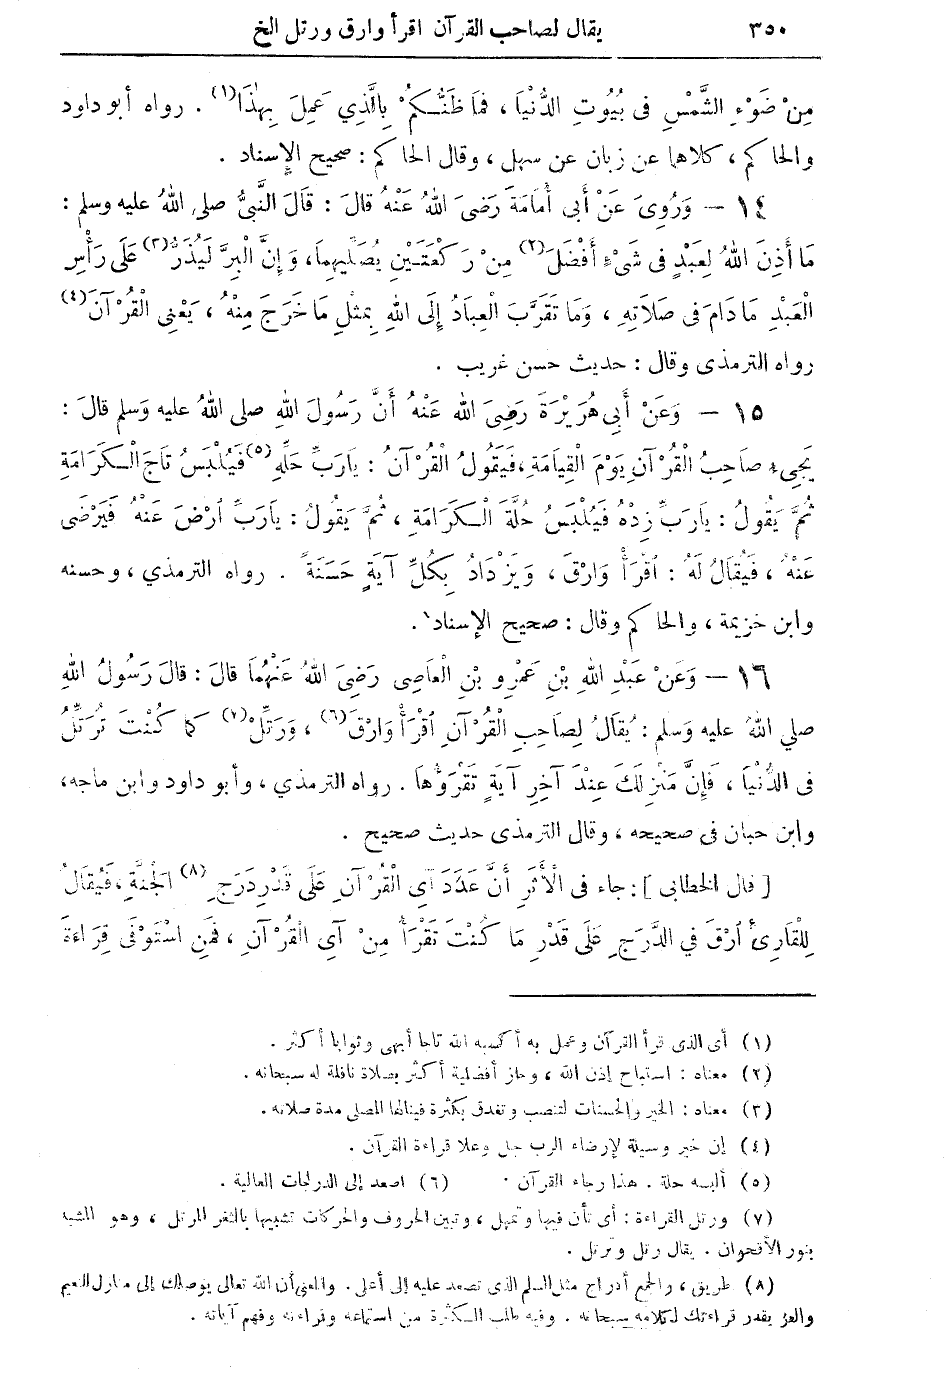 ٣٥٠ يقال لصاحب القرآن اقرأ وارق ورتل الخ
مِنْ ضَوْءِ الشَّمْسِ فى بُيُوتِ الدُّنْيَا ، فَمَا ظَنُّكُمْ بِالَّذِي عَمِلَ بِهٰذَا (١) . رواه أبو داود
والحاكم ، كلاهما عن زبان عن سهل ، وقال الحاكم : صحيح الإسناد .
١٤ — وَرُوِىَ عَنْ أَبى أُمَامَةَ رَضِىَ اللهُ عَنْهُ قالَ : قَالَ النَّبىُّ صلى اللهُ عليه وسلم :
مَا أَذِنَ اللهُ لِعَبْدٍ فى شَىْءٍ أَفْضَلَ (٢) مِنْ رَكْعَتَيْنِ يُصَلِّيهِمَا ، وَإِنَّ الْبِرَّ لَيُذَرُّ (٣) عَلَى رَأْسِ
الْعَبْدِ مَا دَامَ فى صَلَاتِهِ ، وَمَا تَقَرَّبَ الْعِبَادُ إِلَى اللهِ بِمِثْلِ مَا خَرَجَ مِنْهُ ، يَعْنِى الْقُرْآنَ (٤)
رواه الترمذى وقال : حديث حسن غريب .
١٥ — وَعَنْ أَبِى هُرَيْرَةَ رَضِىَ الله عَنْهُ أَنَّ رَسُولَ اللهِ صلى اللهُ عليه وَسلم قالَ :
يَجِىءُ صَاحِبُ الْقُرْآنِ يَوْمَ الْقِيَامَةِ ، فَيَقُولُ الْقُرْآنُ : يَارَبِّ حَلِّهِ (٥) فَيُلْبَسُ تَاجَ الْكَرَامَةِ
ثُمَّ يَقُولُ : يَارَبِّ زِدْهُ فَيُلْبَسُ حُلَّةَ الْكَرَامَةِ ، ثُمَّ يَقُولُ : يَارَبِّ ارْضَ عَنْهُ فَيَرْضَى
عَنْهُ ، فَيُقَالُ لَهُ : اقْرَأْ وَارْقَ ، وَيَزْدَادُ بِكُلِّ آيَةٍ حَسَنَةً . رواه الترمذي ، وحسنه
وابن خزيمة ، والحاكم وقال : صحيح الإسناد .
١٦ — وَعَنْ عَبْدِ اللهِ بْنِ عَمْرِو بْنِ الْعَاصِى رَضِىَ اللهُ عَنْهُمَا قَالَ : قَالَ رَسُولُ اللهِ
صلي اللهُ عليه وَسلم : يُقَالُ لِصَاحِبِ الْقُرْآنِ اقْرَأْ وَارْقَ (٦) ، وَرَتِّلْ (٧) كَمَا كُنْتَ تُرَتِّلُ
فى الدُّنْيَا ، فَإِنَّ مَنْزِلَكَ عِنْدَ آخِرِ آيَةٍ تَقْرَؤُهَا . رواه الترمذي ، وأبو داود وابن ماجه ،
وابن حبان فى صحيحه ، وقال الترمذى حديث صحيح .
[ قال الخطابى ] : جاء فى الْأَثَرِ أَنَّ عَدَدَ آىِ الْقُرْآنِ عَلَى قَدْرِ دَرَجِ (٨) الْجَنَّةِ ، فَيُقَالُ
لِلْقَارِئِ ارْقَ فِي الدَّرَجِ عَلَى قَدْرِ مَا كُنْتَ تَقْرَأُ مِنْ آىِ الْقُرْآنِ ، فَمَنِ اسْتَوْفَى قِرَاءَةَ
(١) أى الذى قرأ القرآن وعمل به أكسبه الله تاجا أبهى وثوابا أكثر .
(٢) معناه : استباح إذن الله ، وحاز أفضلية أكثر بصلاة نافلة له سبحانه .
(٣) معناه : الخير والحسنات لتنصب وتغدق بكثرة فينالها المصلى مدة صلاته .
(٤) إن خير وسيلة لإرضاء الرب جل وعلا قراءة القرآن .
(٥) ألبسه حلة . هذا رجاء القرآن . (٦) اصعد إلى الدرجات العالية .
(٧) ورتل القراءة : أى تأن فيها وتمهل ، وتبين الحروف والحركات تشبيها بالثغر المرتل ، وهو المشبه
بنور الأقحوان . يقال رتل وترتل .
(٨) طريق ، والجمع أدراج مثل السلم الذى تصعد عليه إلى أعلى . والمعنى أن الله تعالى يوصلك إلى منازل النعيم
والعز بقدر قراءتك لكلامه سبحانه . وفيه طلب الكثرة من استماعه وقراءته وفهم آياته .